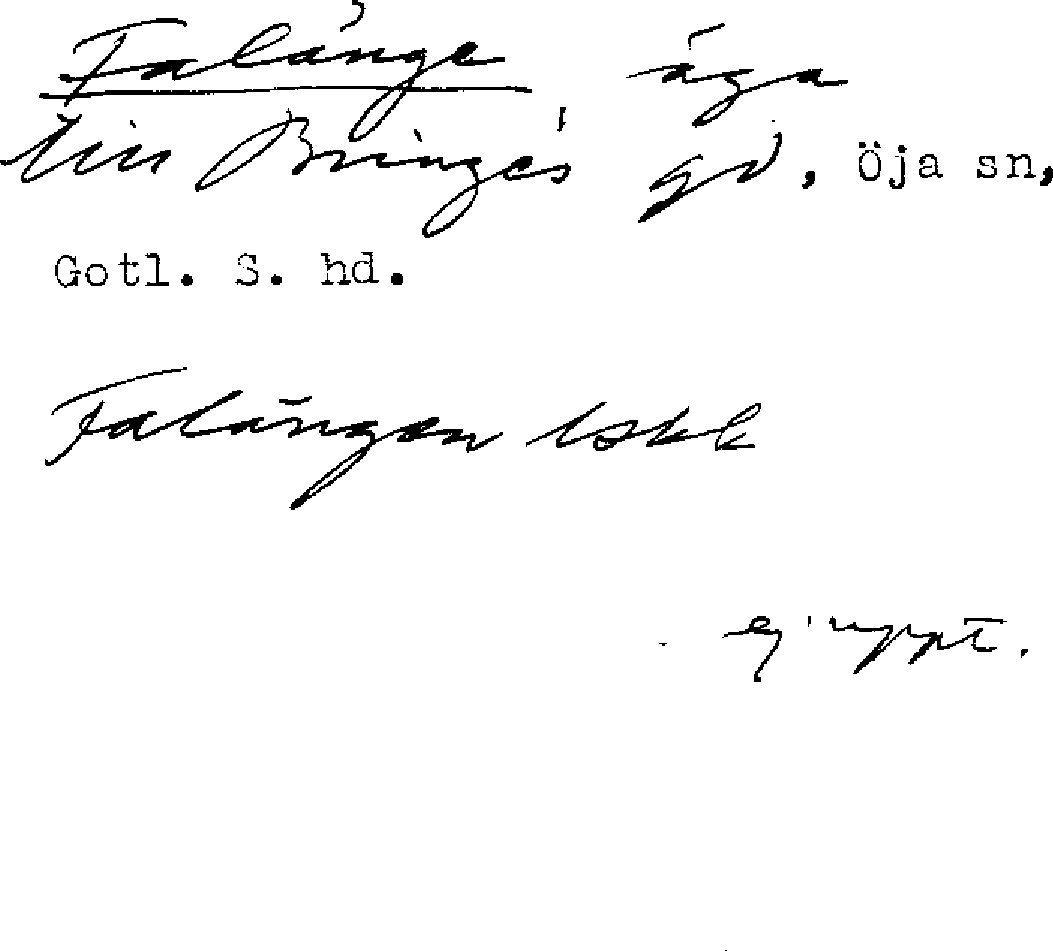 Falänge äga
till Bringes gd, Öja sn,
Gotl. S. hd.
Falängen lskk
ej uppt.